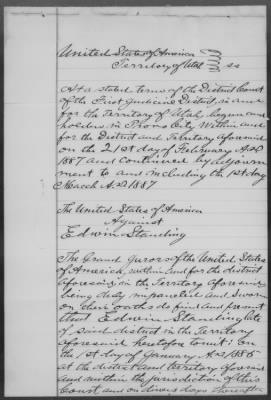 United States of America
Territory of Utah ss
At a stated term of the District Court
of the First Judicial District, in and
for the Territory of Utah, begun and
holden in Provo City within and
for the District and Territory aforesaid
on the 21st day of February A.D
1887 and continued by adjourn
ment to and including the 1st day
March A.D 1887
The United States of America
Against
Edwin Standing
The Grand Jurors of the United States
of America, within and for the district
aforesaid, in the Territory aforesaid
being duly impaneled and sworn
on their oaths do find and present
that Edwin Standing late
of said district in the Territory
aforesaid heretofore to wit: On
the 1st day of January A.D 1885
at the district and territory aforesaid
and within the jurisdiction of this
Court and on divers days thereafter